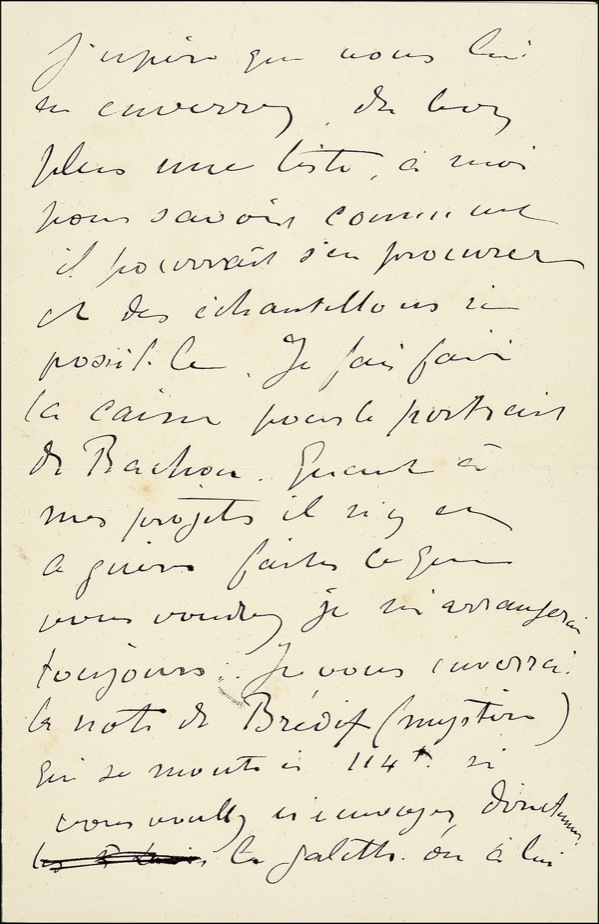 J'espère que vous lui
en enverrez, du bon
plus une liste, à moi
pour savoir comment
il pourrait s'en procurer
et des échantillons si
possible. Je fais faire
la caisse pour le portrait
de Rachou. Quant à
mes projets il n'y en
a guère faites ce que
vous voudrez je m'arrangerai
toujours. Je vous enverrai
la note de Brédif (mystère)
qui se monte à 114f. si
vous voulez m'envoyer directement
la galette. ou à lui